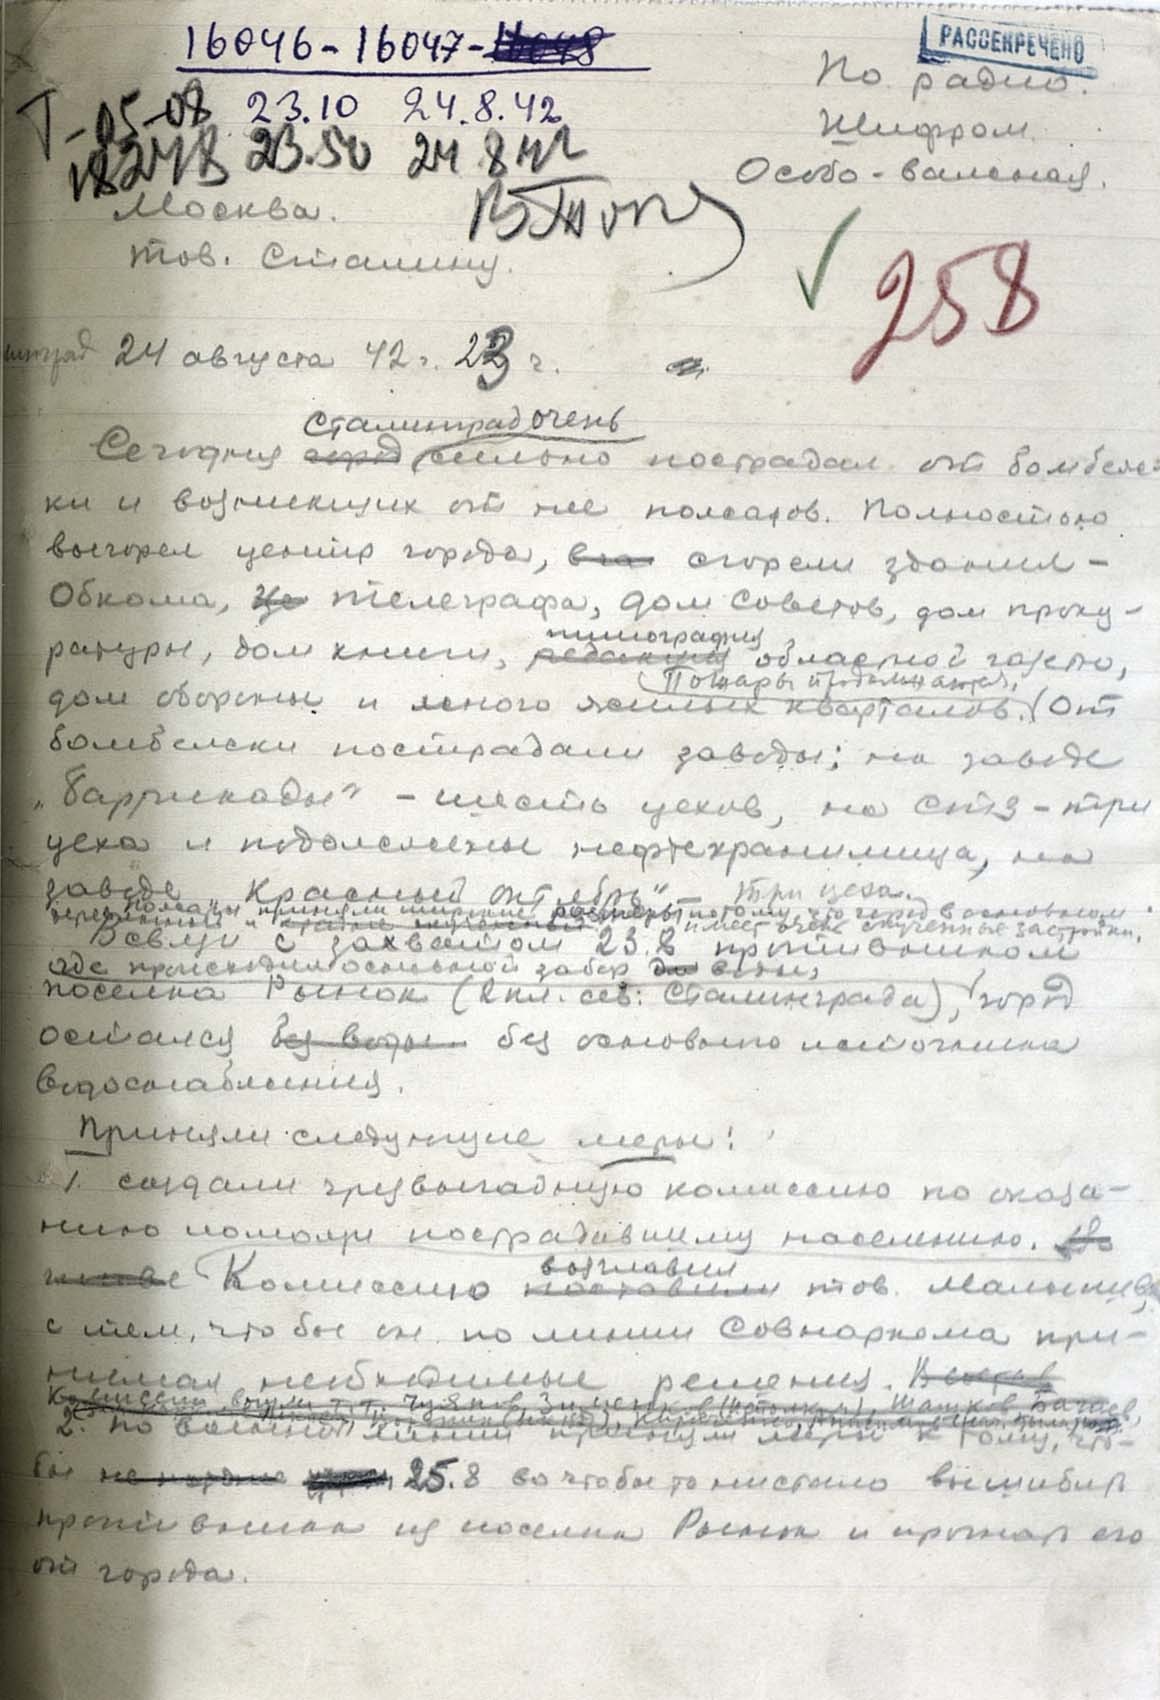 16046-16047-16048
РАССЕКРЕЧЕНО
По радио.
Т-05-08 23.10 24.8.42
Шифром.
23.50 24 8 42
Особо-важная.
Москва.
тов. Сталину.
258
24 августа 42 г. 23 ч.
Сталинград очень
Сегодня город сильно пострадал от бомбеж-
ки и возникших от нее пожаров. Полностью
выгорел центр города, сгорели здания -
Обкома, телеграфа, дом советов, дом проку-
типография
ратуры, дом книги, редакция областной газеты,
Пожары продолжаются.
дом обороны и много жилых кварталов. От
бомбежки пострадали заводы; на заводе
„Баррикады" - шесть цехов, на СТЗ - три
цеха и подожжены нефтехранилища, на
заводе „Красный октябрь" - три цеха.
Пожары приняли широкие размеры потому, что город в основном
деревянный и имеет очень скученные застройки.
В связи с захватом 23.8 противником
где происходил основной забор воды,
поселка Рынок (2 кл. сев. Сталинграда), город
остался без воды без основного источника
водоснабжения.
Приняли следующие меры:
1. создали чрезвычайную комиссию по оказа-
нию помощи пострадавшему населению. Во
возглавил
главе Комиссию поставили тов. Малышев,
с тем, чтобы он по линии Совнаркома при-
нимал необходимые решения. В состав
Комиссии вошли т.т. Чуянов, Зименков
2. по военной линии приняли меры к тому, что-
бы не позднее 25.8 во чтобы то нистало вышибить
противника из поселка Рынок и прогнать его
от города.